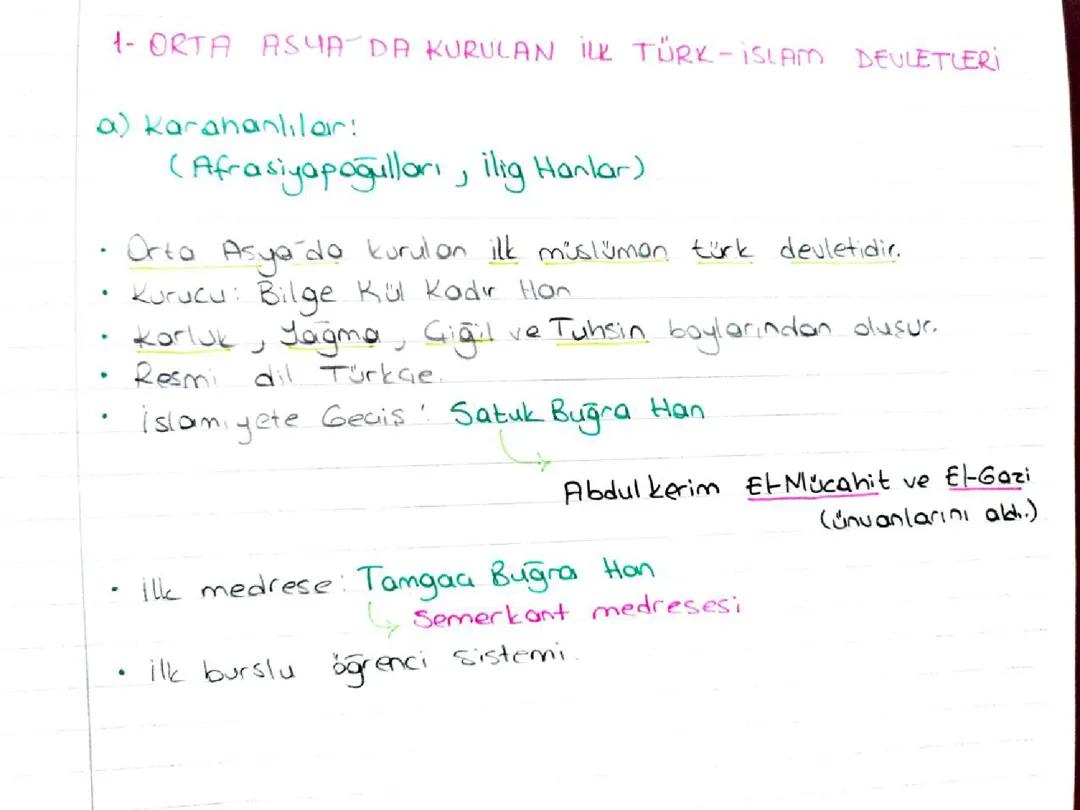 1- ORTA ASYA'DA KURULAN İLK TÜRK-İSLAM DEVLETLERİ
a) Karahanlılar:
(Afrasiyapoğulları, İlig Hanlar)
• Orta Asya'da kurulan ilk müslüman türk devletidir.
• Kurucu: Bilge Kül Kadir Han
• Karluk, Yağma, Çiğil ve Tuhsin boylarından oluşur.
• Resmi dil Türkçe.
• İslamiyete Geçiş: Satuk Buğra Han
Abdulkerim El-Mücahit ve El-Gazi
(ünvanlarını aldı.)
• İlk medrese: Tamgaç Buğra Han
Semerkant medresesi
• İlk burslu öğrenci sistemi.